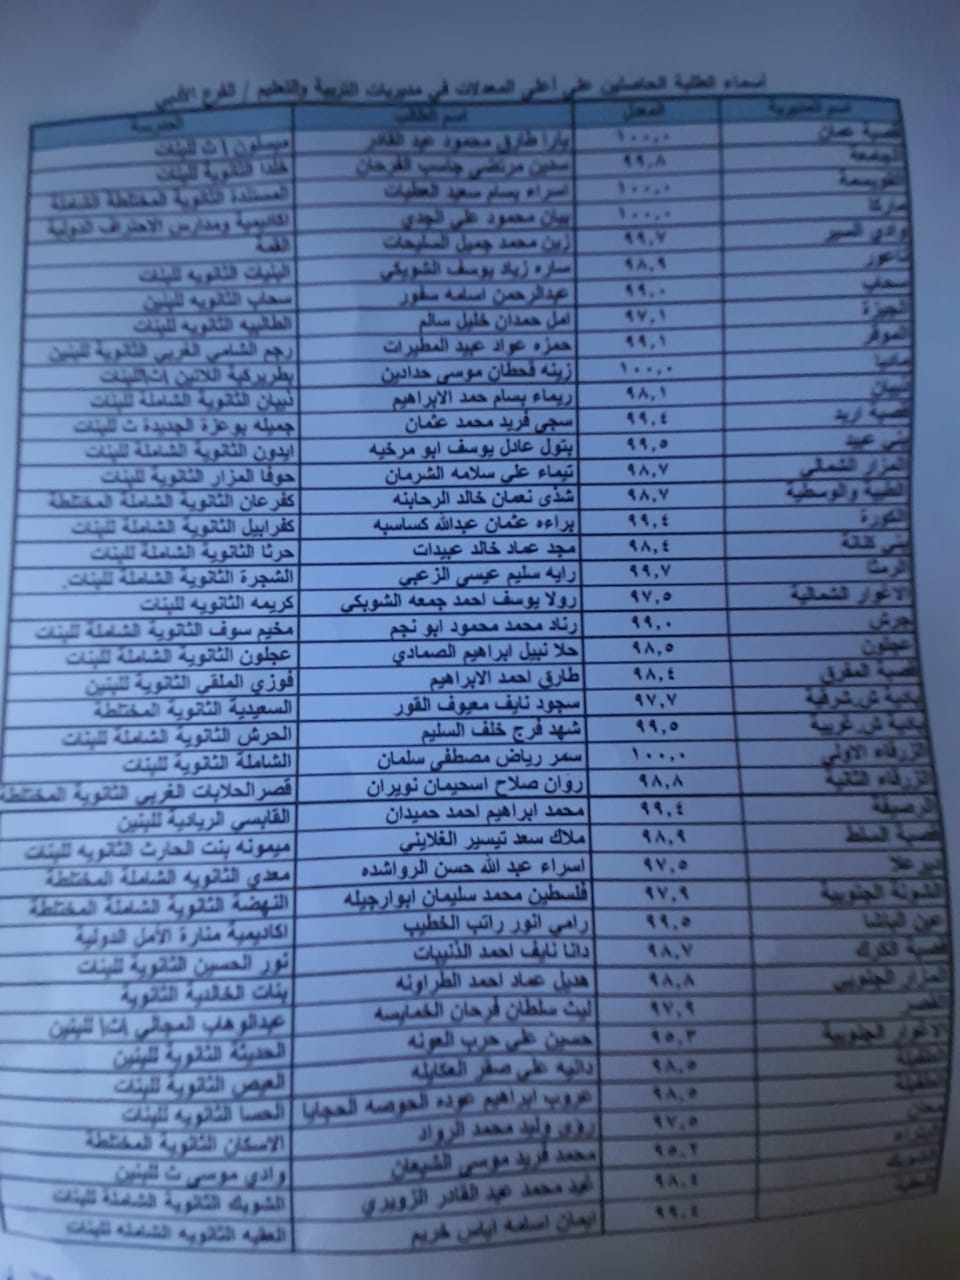 أسماء الطلبة الحاصلين على أعلى المعدلات في مديريات التربية والتعليم / الفرع الأدبي
اسم المديرية المعدل اسم الطالب المدرسة
قصبة عمان ١٠٠,٠ يارا طارق محمود عبد القادر ميسلون \ ث للبنات
الجامعة ٩٩,٨ سدين مرتضي جاسب الفرحان خلدا الثانوية للبنات
القويسمة ١٠٠,٠ اسراء بسام سعيد العطيات المستندة الثانوية المختلطة الشاملة
ماركا ١٠٠,٠ بيان محمود علي الجدي اكاديمية ومدارس الاحتراف الدولية
وادي السير ٩٩,٧ زين محمد جميل السليحات القمة
ناعور ٩٨,٩ ساره زياد يوسف الشويكي البنيات الثانويه للبنات
سحاب ٩٩,٠ عبدالرحمن اسامه سقور سحاب الثانويه للبنين
الجيزة ٩٧,١ امل حمدان خليل سالم الطالبيه الثانويه للبنات
الموقر ٩٩,١ حمزه عواد عبيد المطيرات رجم الشامي الغربي الثانوية للبنين
مادبا ١٠٠,٠ زينه قحطان موسى حدادين بطريركية اللاتين \ث\للبنات
ذيبان ٩٨,١ ريماء بسام حمد الابراهيم ذيبان الثانوية الشاملة للبنات
قصبة اربد ٩٩,٤ سجى فريد محمد عثمان جميله بوعزة الجديدة ث للبنات
بني عبيد ٩٩,٥ بتول عادل يوسف ابو مرخيه ايدون الثانوية الشاملة للبنات
المزار الشمالي ٩٨,٧ تيماء علي سلامه الشرمان حوفا المزار الثانوية للبنات
الطيبة والوسطية ٩٨,٧ شذى نعمان خالد الرحابنه كفرعان الثانوية الشاملة المختلطة
الكورة ٩٩,٤ براءه عثمان عبدالله كساسبه كفرابيل الثانوية الشاملة للبنات
بني كنانة ٩٨,٤ مجد عماد خالد عبيدات حرثا الثانوية الشاملة للبنات
الرمثا ٩٩,٧ رايه سليم عيسى الزعبي الشجرة الثانوية الشاملة للبنات
الاغوار الشمالية ٩٧,٥ رولا يوسف احمد جمعه الشوبكي كريمه الثانويه للبنات
جرش ٩٩,٠ رناد محمد محمود ابو نجم مخيم سوف الثانوية الشاملة للبنات
عجلون ٩٨,٥ حلا نبيل ابراهيم الصمادي عجلون الثانوية الشاملة للبنات
قصبة المفرق ٩٨,٤ طارق احمد الابراهيم فوزي الملقي الثانوية للبنين
بادية ش.شرقية ٩٧,٧ سجود نايف معيوف القور السعيدية الثانوية المختلطة
بادية ش.غربية ٩٩,٥ شهد فرج خلف السليم الحرش الثانوية الشاملة للبنات
الزرقاء الاولى ١٠٠,٠ سمر رياض مصطفى سلمان الشاملة الثانوية للبنات
الزرقاء الثانية ٩٨,٨ روان صلاح اسحيمان نويران قصر الحلابات الغربي الثانوية المختلطة
الرصيفة ٩٩,٤ محمد ابراهيم احمد حميدان القابسي الريادية للبنين
قصبة السلط ٩٨,٩ ملاك سعد تيسير الغلاييني ميمونه بنت الحارث الثانويه للبنات
ديرعلا ٩٧,٥ اسراء عبد الله حسن الرواشده معدي الثانويه الشاملة المختلطة
الشونة الجنوبية ٩٧,٩ فلسطين محمد سليمان ابوارجيله النهضة الثانوية الشاملة المختلطة
عين الباشا ٩٩,٥ رامي انور راتب الخطيب اكاديمية منارة الأمل الدولية
قصبة الكرك ٩٨,٧ دانا نايف احمد الذنيبات نور الحسين الثانوية للبنات
المزار الجنوبي ٩٨,٨ هديل عماد احمد الطراونه بنات الخالدية الثانوية
القصر ٩٧,٩ ليث سلطان فرحان الخمايسه عبدالوهاب المجالي \ث\ للبنين
الاغوار الجنوبية ٩٥,٣ حسين علي حرب العونه الحديثة الثانوية للبنين
الطفيلة ٩٨,٥ دانيه علي صقر العكايله العيص الثانوية للبنات
الطفيلة ٩٨,٥ عروب ابراهيم عوده الحوصه الحجايا الحسا الثانويه للبنات
معان ٩٧,٥ رؤى وليد محمد الرواد الاسكان الثانوية المختلطة
البتراء ٩٥,٢ محمد فريد موسى الشيعان وادي موسى ث للبنين
الشوبك ٩٨,٤ غيد محمد عبد القادر الزويري الشوبك الثانوية الشاملة للبنات
العقبة ٩٩,٤ ايمان اسامه اياس خريم العقبه الثانويه الشامله للبنات